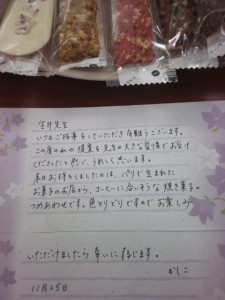 笠井先生
いつもご指導をしていただき有難うございます。
この度の私の提案を先生の大きな愛情でお受け
くださったと感じ、うれしく思います。
本日お持ちしましたのは、パリで生まれた
お菓子のお店から、コーヒーに合いそうな焼き菓子の
つめあわせです。色とりどりですのでお楽しみ
いただけましたら幸いに存じます。
かしこ
11月25日